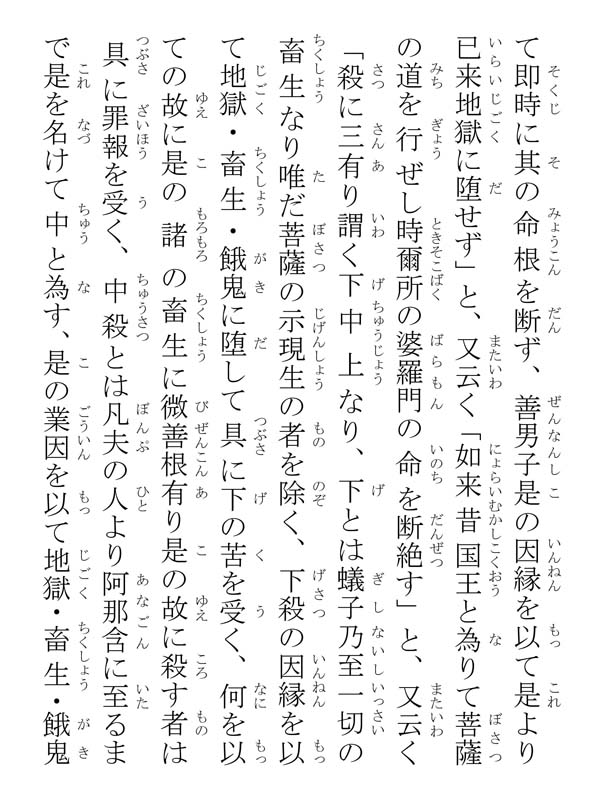 て即時に其の命根を断ず、善男子是の因縁を以て是より
已来地獄に堕せず」と、又云く「如来昔国王と為りて菩薩
の道を行ぜし時爾所の婆羅門の命を断絶す」と、又云く
「殺に三有り謂く下中上なり、下とは蟻子乃至一切の
畜生なり唯だ菩薩の示現生の者を除く、下殺の因縁を以
て地獄・畜生・餓鬼に堕して具に下の苦を受く、何を以
ての故に是の諸の畜生に微善根有り是の故に殺す者は
具に罪報を受く、中殺とは凡夫の人より阿那含に至るま
で是を名けて中と為す、是の業因を以て地獄・畜生・餓鬼